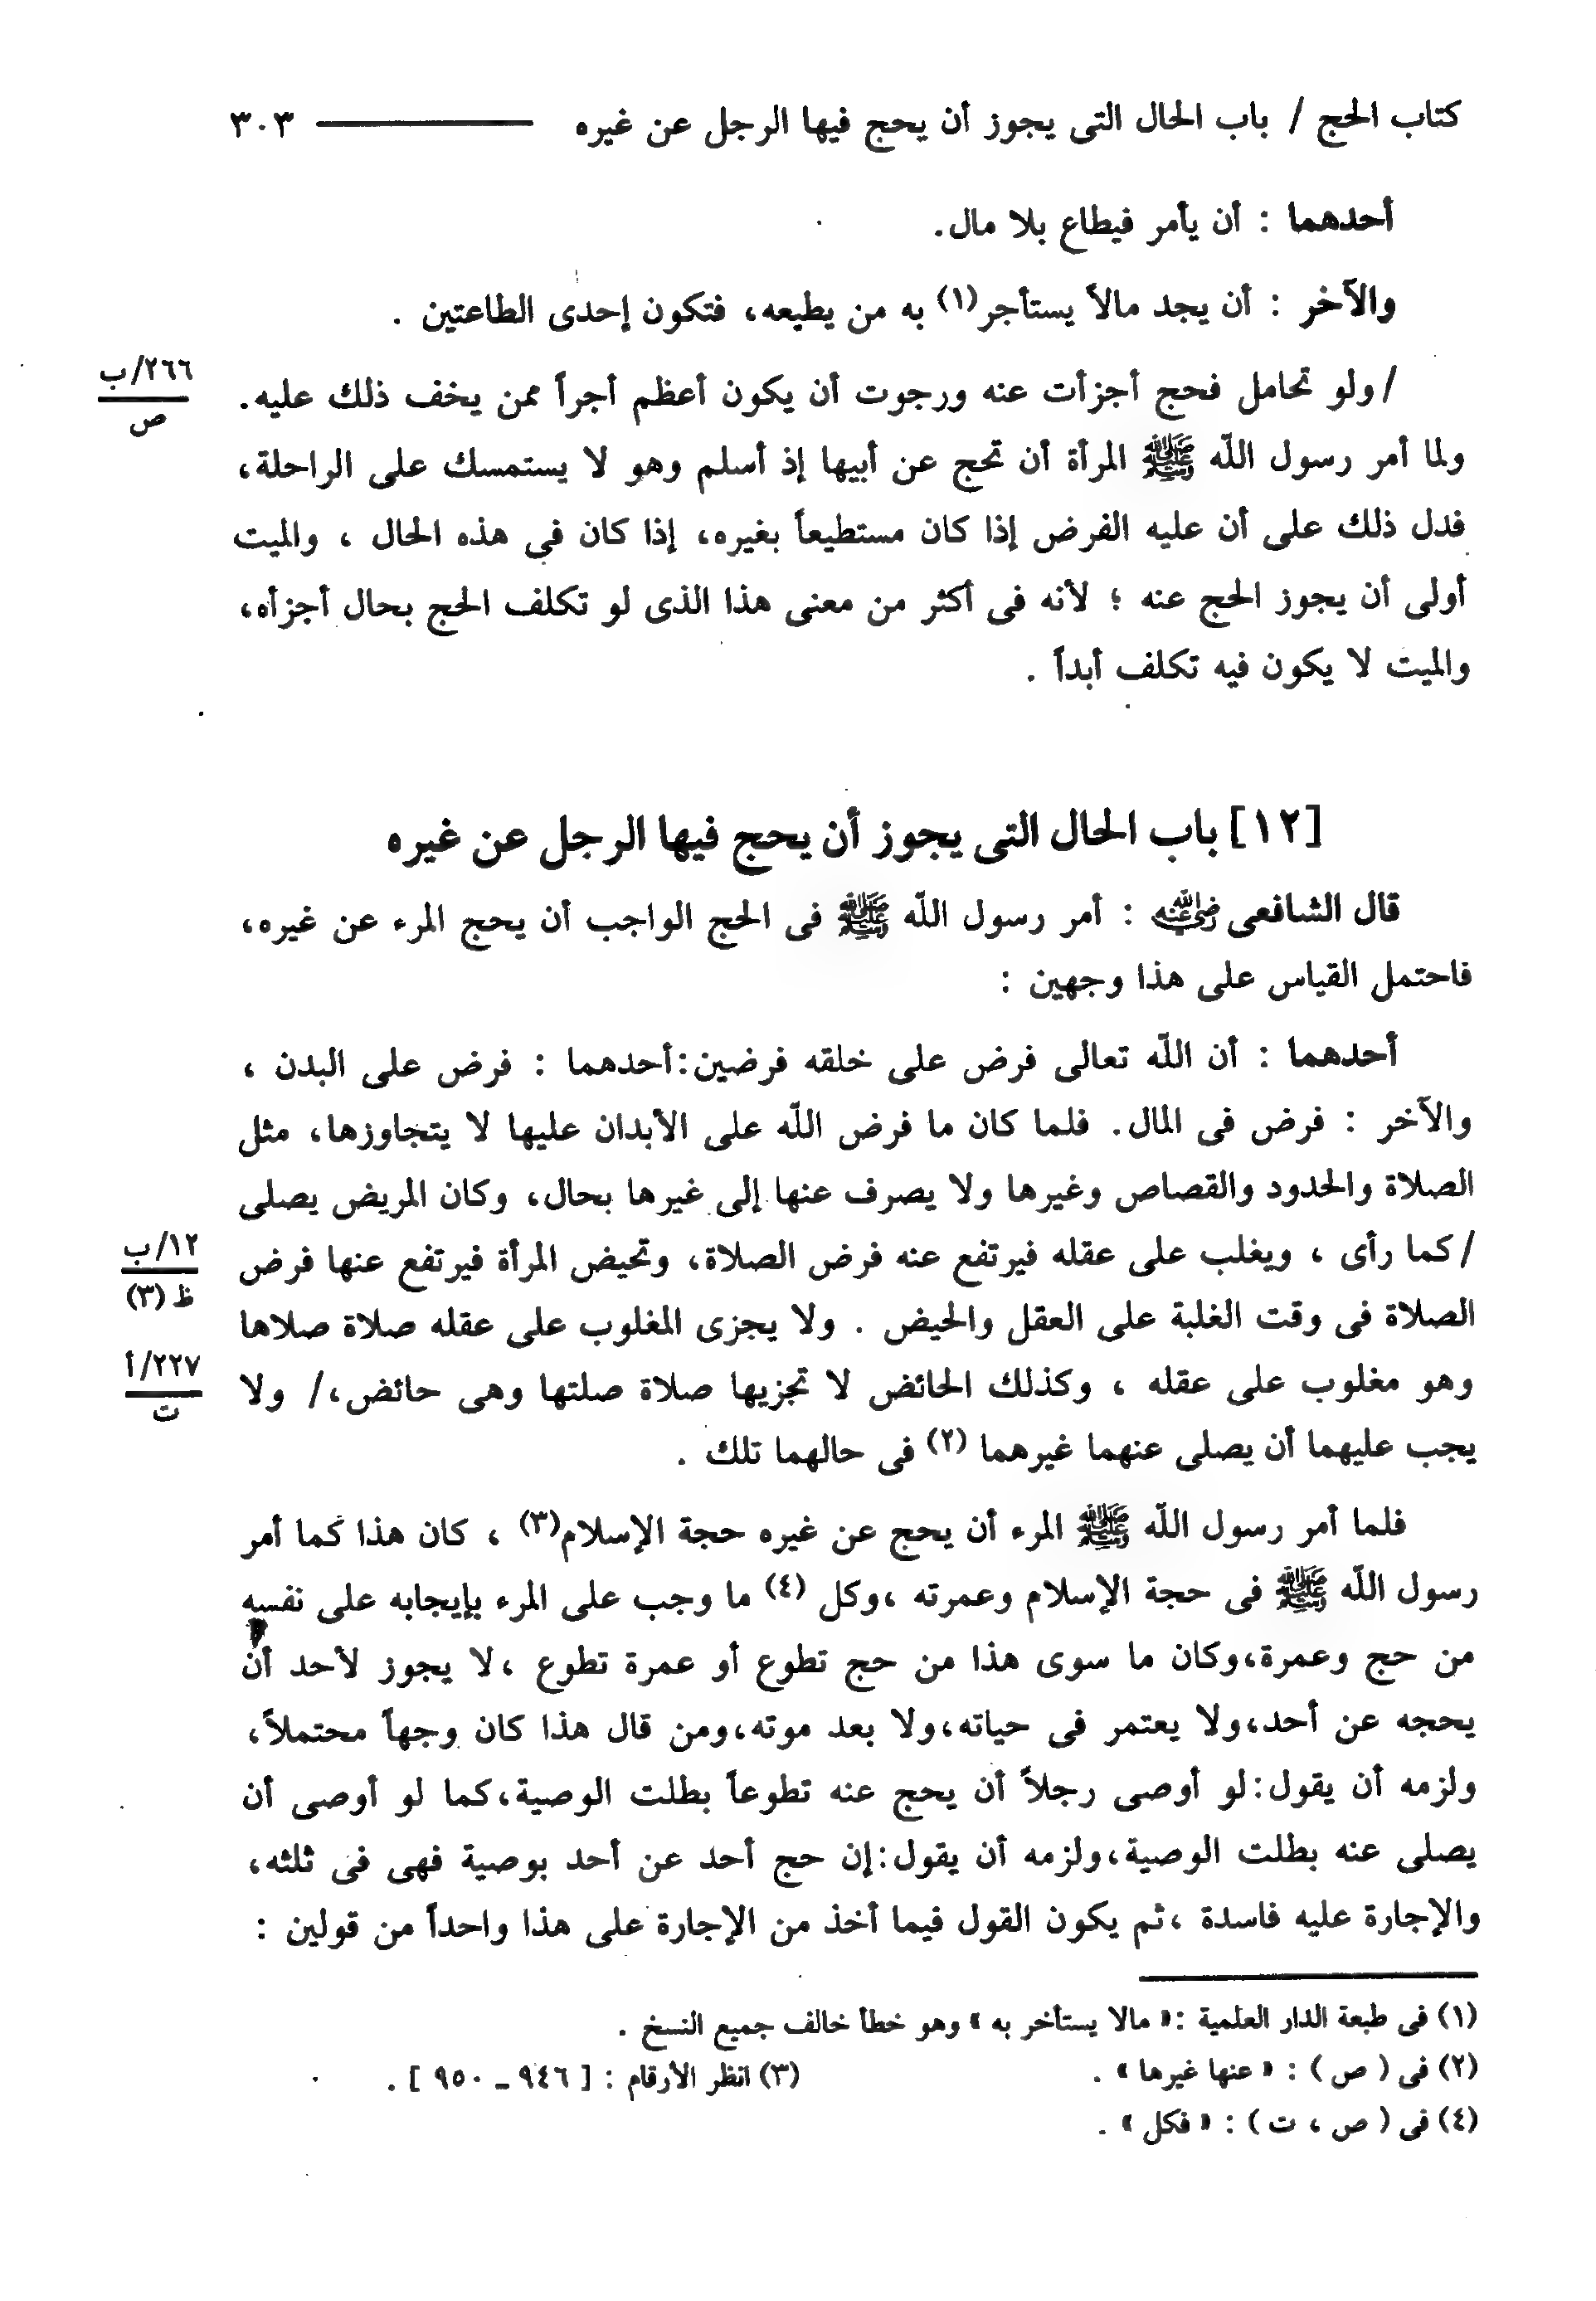 كتاب الحج / باب الحال التى يجوز أن يحج فيها الرجل عن غيره ــــــــ ٣٠٣
أحدهما : أن يأمر فيطاع بلا مال.
والآخر : أن يجد مالاً يستأجر(١) به من يطيعه، فتكون إحدى الطاعتين .
/ ولو تحامل فحج أجزأت عنه ورجوت أن يكون أعظم أجراً ممن يخف ذلك عليه.
٢٦٦/ب
ص
ولما أمر رسول اللّه ﷺ المرأة أن تحج عن أبيها إذ أسلم وهو لا يستمسك على الراحلة،
فدل ذلك على أن عليه الفرض إذا كان مستطيعاً بغيره، إذا كان في هذه الحال ، والميت
أولى أن يجوز الحج عنه ؛ لأنه فى أكثر من معنى هذا الذى لو تكلف الحج بحال أجزأه،
والميت لا يكون فيه تكلف أبداً .
[١٢] باب الحال التى يجوز أن يحج فيها الرجل عن غيره
قال الشافعى رضي الله عنه : أمر رسول اللّه ﷺ فى الحج الواجب أن يحج المرء عن غيره،
فاحتمل القياس على هذا وجهين :
أحدهما : أن اللّه تعالى فرض على خلقه فرضين:أحدهما : فرض على البدن ،
والآخر : فرض فى المال. فلما كان ما فرض اللّه على الأبدان عليها لا يتجاوزها، مثل
الصلاة والحدود والقصاص وغيرها ولا يصرف عنها إلى غيرها بحال، وكان المريض يصلى
/ كما رأى ، ويغلب على عقله فيرتفع عنه فرض الصلاة، وتحيض المرأة فيرتفع عنها فرض
١٢/ب
ظ (٣)
الصلاة فى وقت الغلبة على العقل والحيض . ولا يجزى المغلوب على عقله صلاة صلاها
وهو مغلوب على عقله ، وكذلك الحائض لا تجزيها صلاة صلتها وهى حائض،/ ولا
٢٢٧/أ
ت
يجب عليهما أن يصلى عنهما غيرهما (٢) فى حالهما تلك .
فلما أمر رسول اللّه ﷺ المرء أن يحج عن غيره حجة الإسلام(٣) ، كان هذا كما أمر
رسول اللّه ﷺ فى حجة الإسلام وعمرته ،وكل (٤) ما وجب على المرء بإيجابه على نفسه
من حج وعمرة،وكان ما سوى هذا من حج تطوع أو عمرة تطوع ،لا يجوز لأحد أن
يحجه عن أحد،ولا يعتمر فى حياته،ولا بعد موته،ومن قال هذا كان وجهاً محتملاً،
ولزمه أن يقول:لو أوصى رجلاً أن يحج عنه تطوعاً بطلت الوصية،كما لو أوصى أن
يصلى عنه بطلت الوصية،ولزمه أن يقول:إن حج أحد عن أحد بوصية فهى فى ثلثه،
والإجارة عليه فاسدة ،ثم يكون القول فيما أخذ من الإجارة على هذا واحداً من قولين :
(١) فى طبعة الدار العلمية :« مالا يستأخر به » وهو خطأ خالف جميع النسخ .
(٢) فى ( ص ) : « عنها غيرها » . (٣) انظر الأرقام : [ ٩٤٦ ـ ٩٥٠ ] .
(٤) فى ( ص ، ت ) : « فكل » .